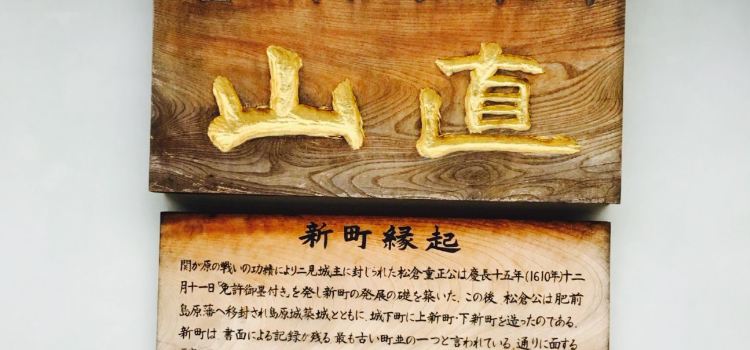 山直
新町縁起
関が原の戦いの功績により二見城主に封じられた松倉重正公は慶長十五年(1610年)十二
月十一日「免許御墨付き」を発し新町の発展の礎を築いた。この後、松倉公は肥前
島原藩へ移封され島原城築城とともに、城下町に上新町・下新町を造ったのである。
新町は、書面による記録が残る最も古い町並の一つと言われている。通りに面する